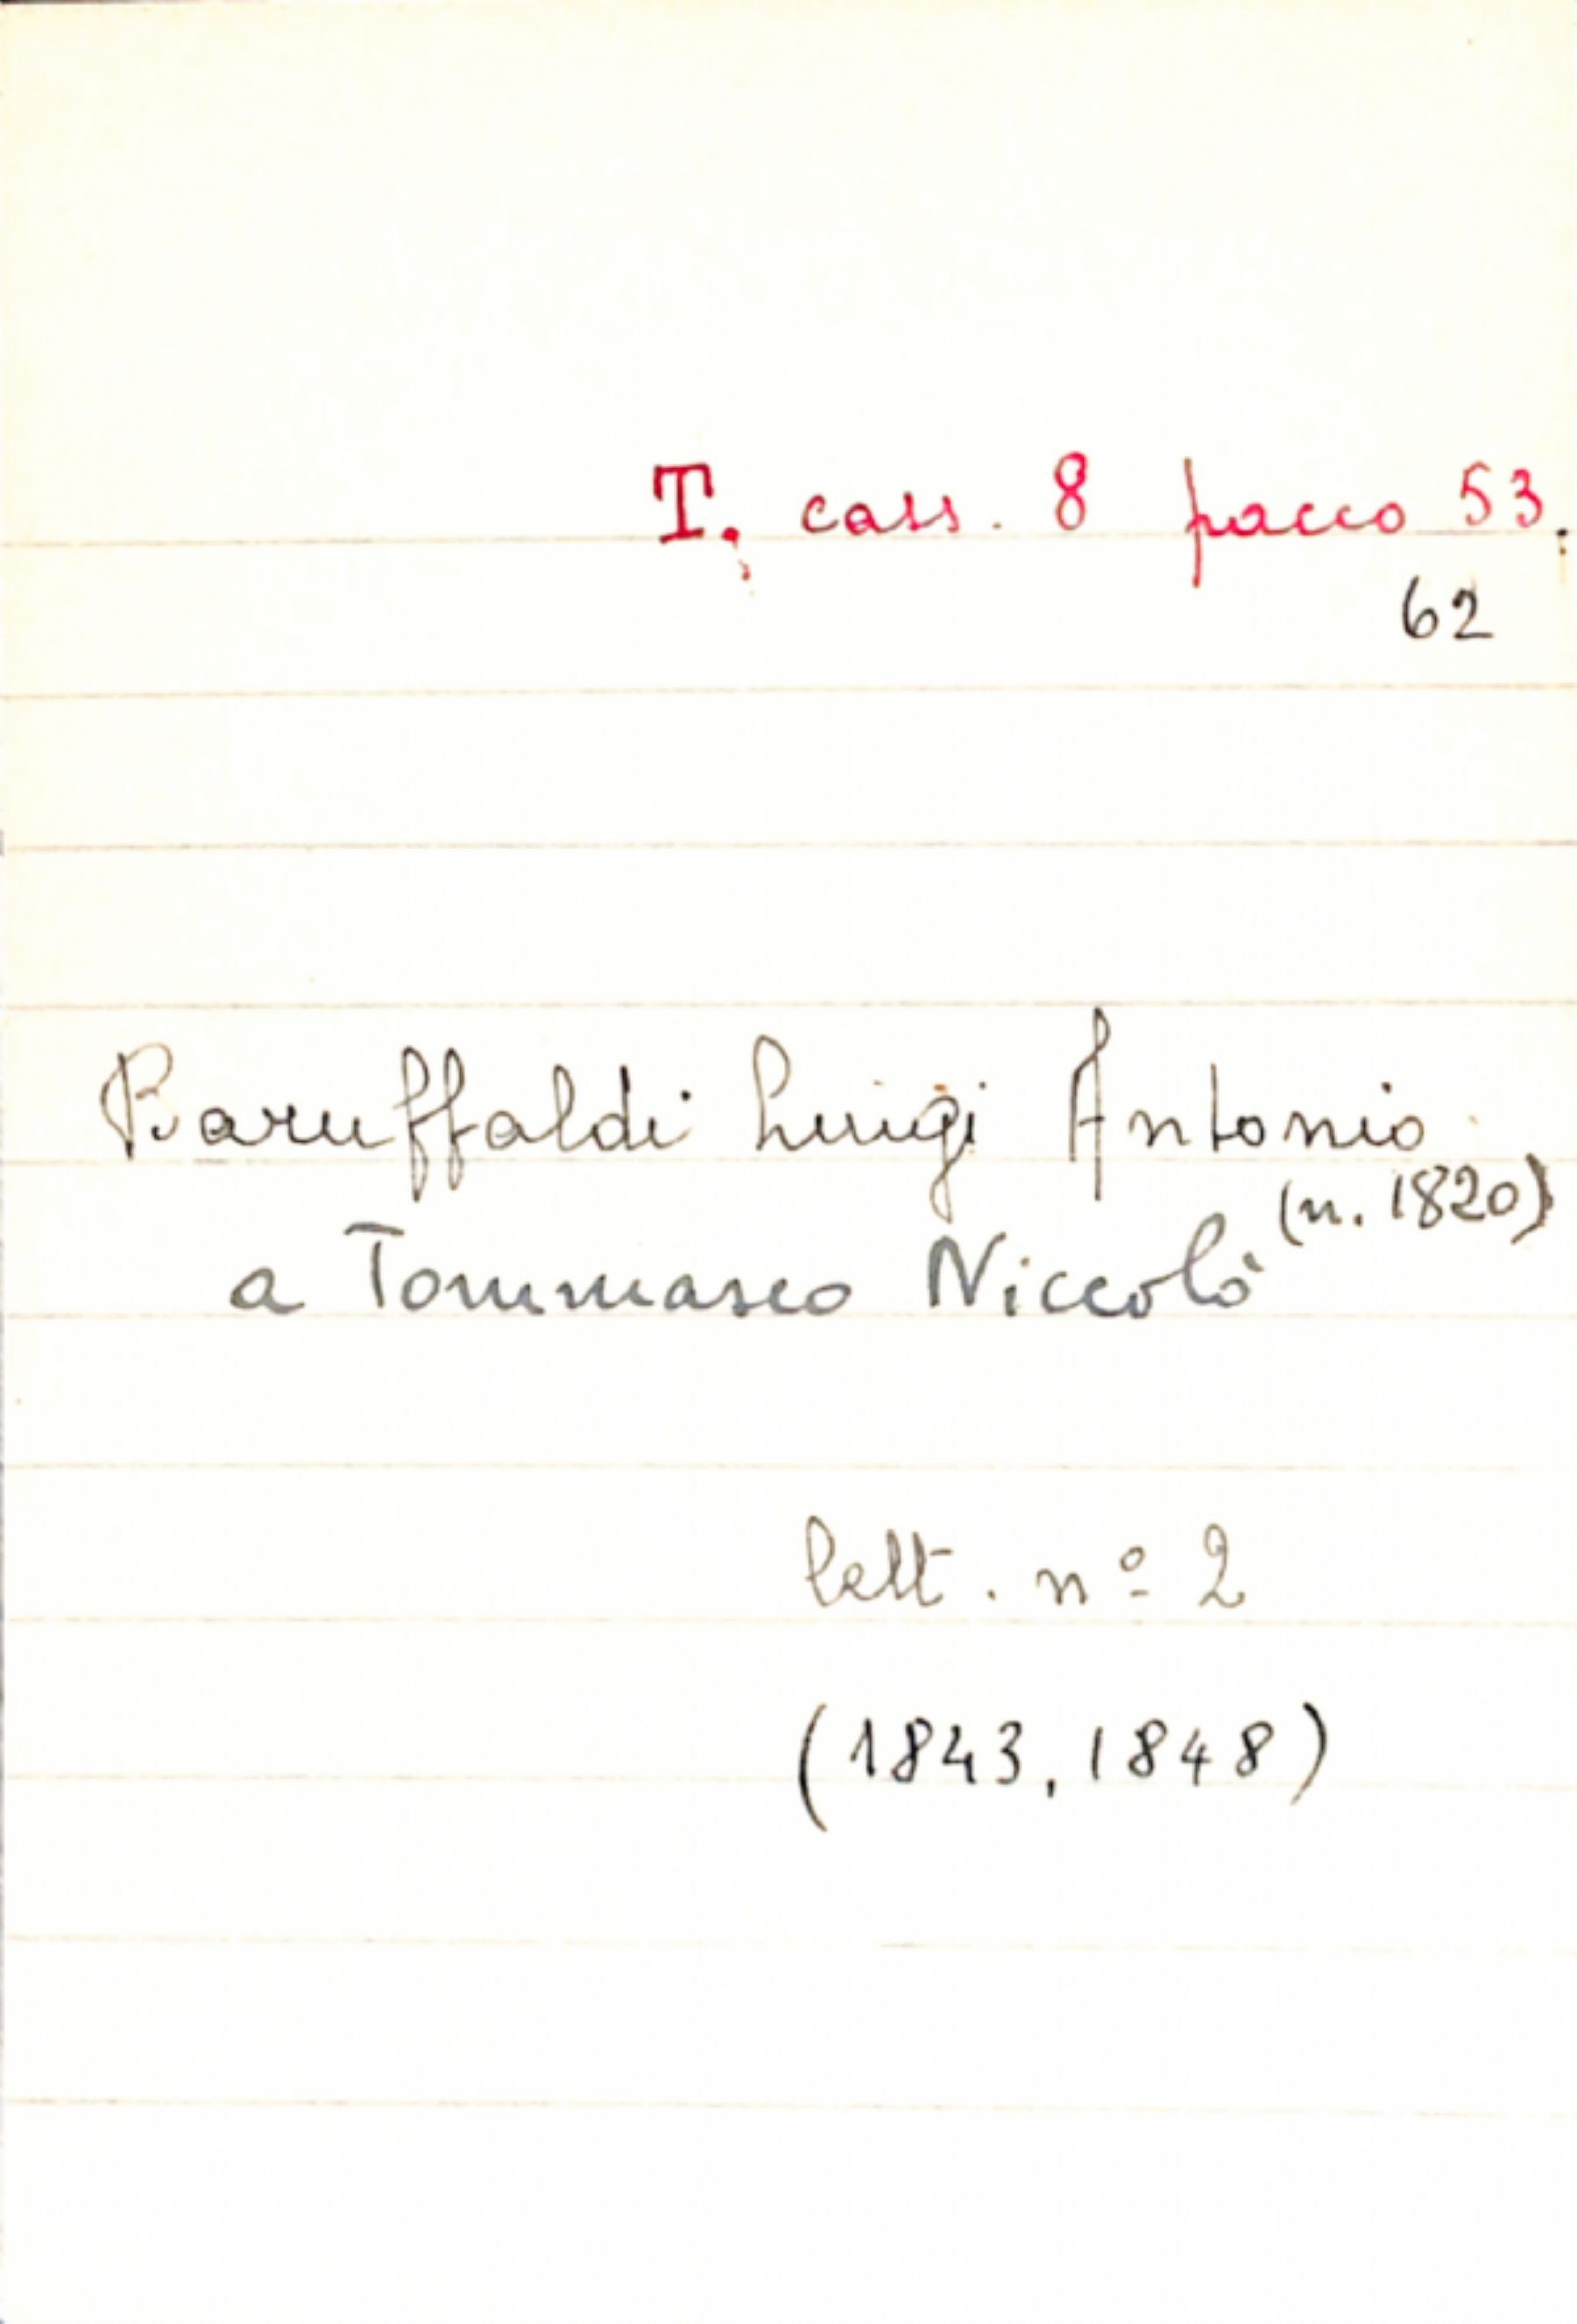 T. cass. 8 pacco 53.
62
Baruffaldi Luigi Antonio
(n. 1820)
a Tommaseo Niccolò
lett. nº 2
(1843, 1848)